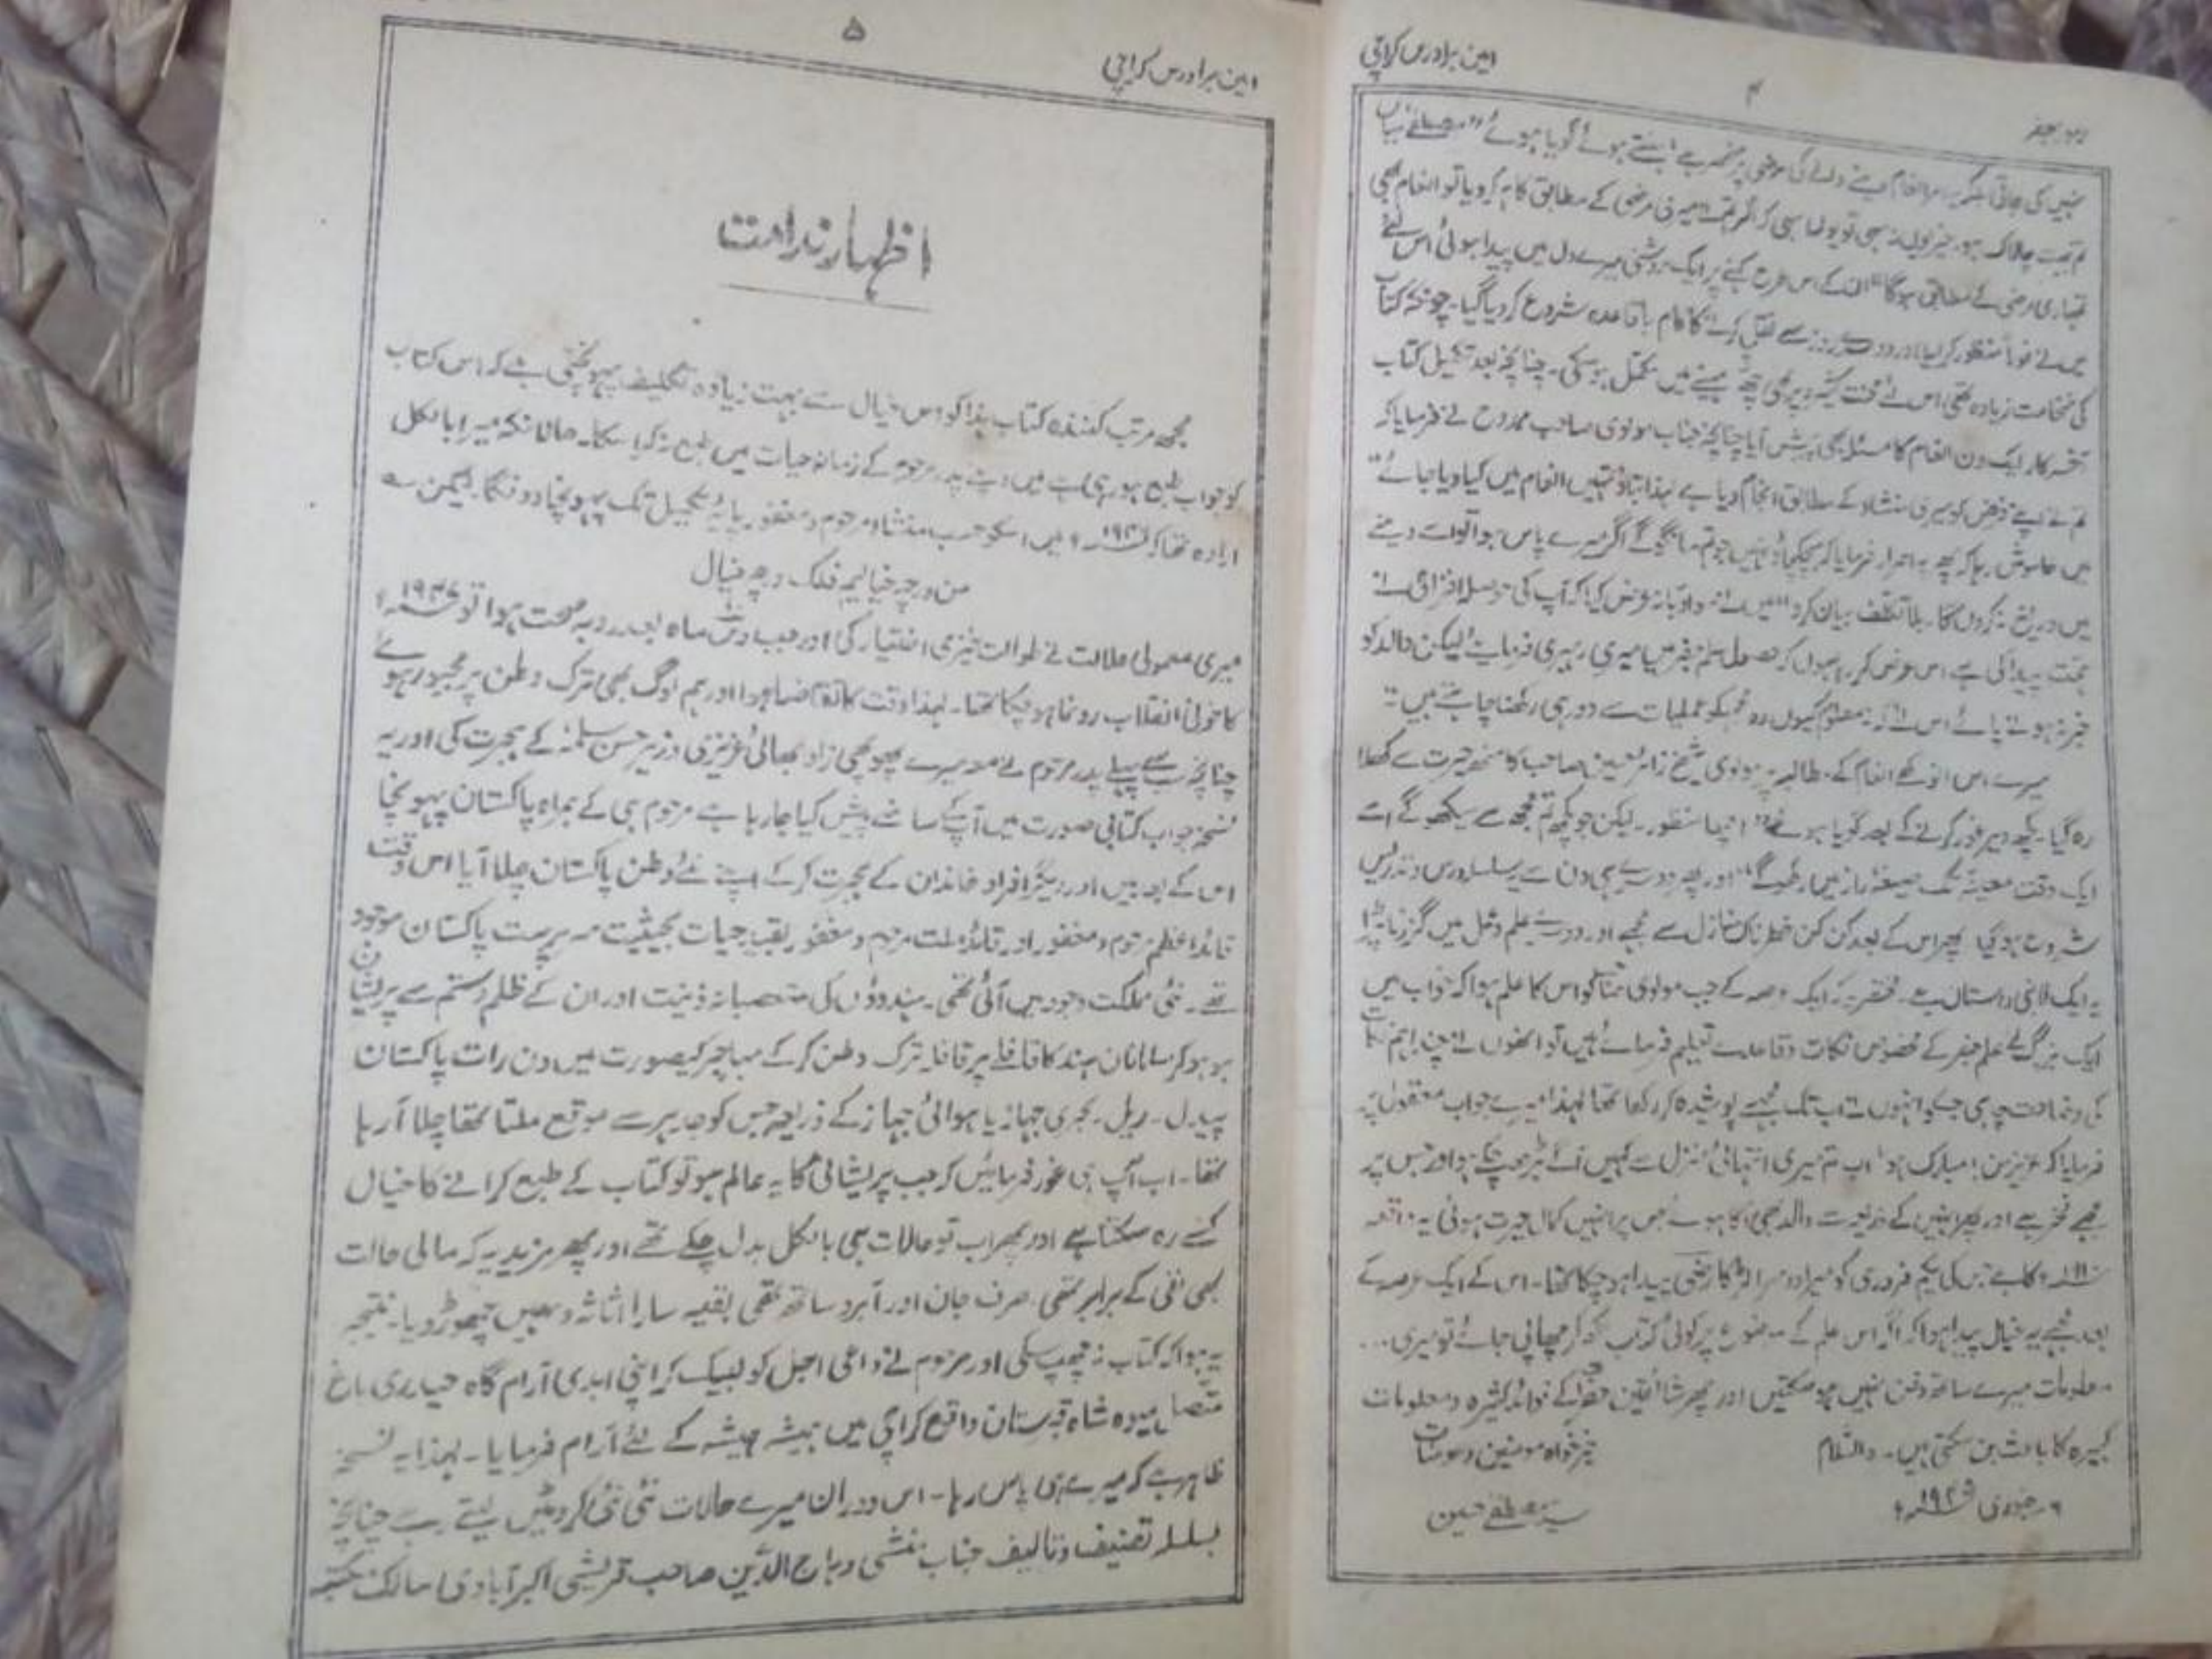 امین برادرس کراچی
۴
رموز جفر
نہیں کی جاتی انعام دینے والے کی مرضی پر منحصر ہے ہنستے ہوئے گویا ہوئے مصطفےٰ میاں
تم بہت چالاک ہو۔ خیر یوں نہ سہی تو یوں سہی کہ اگر تم نے میری مرضی کے مطابق کام کر دیا تو انعام بھی
تمہاری مرضی کے مطابق ہوگا" ان کے اس طرح کہنے پر ایک روشنی میرے دل میں پیدا ہوئی اس لئے
میں نے فوراً منظور کر لیا اور دوسرے روز سے نقل کرنے کا کام باقاعدہ شروع کر دیا گیا۔ چونکہ کتاب
کی ضخامت زیادہ تھی اس لئے محنت کے باوجود بھی چھ مہینے میں مکمل ہو سکی۔ چنانچہ بعد تکمیل کتاب
آخر کار ایک دن انعام کا مسئلہ بھی پیش آیا چنانچہ جناب مولوی صاحب ممدوح نے فرمایا کہ
تم نے اپنے فرض کو میری منشاء کے مطابق انجام دیا ہے لہٰذا بتاؤ تمہیں انعام میں کیا دیا جائے"
میں خاموش رہا کہ پھر بہ اصرار فرمایا کہ ہچکچاؤ نہیں جو تم مانگو گے اگر میرے پاس ہوا تو اسے دینے
میں دریغ نہ کروں گا۔ بلا تکلف بیان کرو" میں نے مؤدبانہ عرض کیا کہ آپ کی حوصلہ افزائی نے
ہمت پیدا کی ہے اس لئے عرض کر رہا ہوں کہ حصول علم جفر میں میری رہبری فرمائیے لیکن والد کو
خبر نہ ہونے پائے اس لئے کہ نہ معلوم کیوں وہ مجھکو عملیات سے دور ہی رکھنا چاہتے ہیں"
میرے اس انوکھے انعام کے مطالبہ پر مولوی شیخ صاحب کا منھ حیرت سے کھلا
رہ گیا۔ کچھ دیر غور کرنے کے بعد گویا ہوئے" اچھا منظور۔ لیکن جو کچھ تم مجھ سے سیکھو گے اسے
ایک وقت معینہ تک صیغہ راز میں رکھو گے" اور پھر دوسرے ہی دن سے یہ سلسلہ درس و تدریس
شروع ہو گیا پھر اس کے بعد کن کن خطرناک منازل سے مجھے اور دوسرے علم و عمل میں گزرنا پڑا
یہ ایک لانبی داستان ہے۔ مختصر یہ کہ ایک عرصہ کے جب مولوی صاحب کو اس کا علم ہوا کہ خواب میں
ایک بزرگ نے علم جفر کے مخصوص نکات و قاعدے تعلیم فرمائے ہیں تو انھوں نے چند اہم نکات
کی وضاحت چاہی جسکو انہوں نے اب تک مجھ سے پوشیدہ کر رکھا تھا لہٰذا میرے جواب معقول پر
فرمایا کہ عزیز من! مبارک ہو، اب تم میری انتہائی منزل سے کہیں آگے بڑھ چکے ہو اور جس پر
مجھے فخر ہے اور پھر انہیں کے ذریعہ والد بھی آگاہ ہوئے جس پر انہیں کمال حیرت ہوئی یہ واقعہ
کا ہے جس کی یکم فروری کو میرا دوسرا لڑکا پیدا ہو چکا تھا۔ اس کے ایک عرصہ کے
بعد مجھے یہ خیال پیدا ہوا کہ اگر اس علم کے موضوع پر کوئی کتاب لکھ کر چھاپی جائے تو میری...
معلومات میرے ساتھ دفن نہیں ہو سکتیں اور پھر شائقین حضرات کے فوائد کثیرہ و معلومات
کبیرہ کا باعث بن سکتی ہیں۔ والسلام
خیر خواہ مومنین و مومنات
جنوری
سید مصطفےٰ حسین
امین برادرس کراچی
۵
اظہار ندامت
مجھ مرتب کنندہ کتاب ہذا کو اس خیال سے بہت زیادہ تکلیف پہونچتی ہے کہ اس کتاب
کو جو اب طبع ہو رہی ہے میں اپنے پدر مرحوم کے زمانہ حیات میں طبع نہ کرا سکا۔ حالانکہ میرا بالکل
ارادہ تھا کہ میں اسکو حسب منشاء مرحوم و مغفور پایۂ تکمیل تک پہونچا دونگا۔ لیکن ے
من در چہ خیالیم فلک در چہ خیال
میری معمولی علالت نے طوالت خیزی اختیار کی اور جب دس ماہ بعد رو بہ صحت ہوا تو ۱۹۴۷ء
کا خونی انقلاب رونما ہو چکا تھا۔ لہٰذا وقت کا تقاضا ہوا اور ہم لوگ بھی ترک وطن پر مجبور ہو گئے
چنانچہ سب سے پہلے پدر مرحوم نے معہ میرے پھوپھی زاد بھائی عزیزی وزیر حسن سلمہٗ کے ہجرت کی اور یہ
نسخہ جو اب کتابی صورت میں آپ کے سامنے پیش کیا جا رہا ہے مرحوم ہی کے ہمراہ پاکستان پہونچا
اس کے بعد میں اور دیگر افراد خاندان کے ہجرت کر کے اپنے نئے وطن پاکستان چلا آیا اس وقت
قائد اعظم مرحوم و مغفور اور قائد ملت مرحوم و مغفور بقید حیات بحیثیت سرپرست پاکستان موجود
تھے۔ نئی مملکت وجود میں آئی تھی۔ ہندوؤں کی متعصبانہ ذہنیت اور ان کے ظلم و ستم سے پریشان
ہو ہو کر مسلمانان ہند کا قافلے پر قافلہ ترک وطن کر کے مہاجر کیصورت میں دن رات پاکستان
پیدل۔ ریل۔ بحری جہاز یا ہوائی جہاز کے ذریعہ جس کو جدہر سے موقع ملتا تھا چلا آ رہا
تھا۔ اب آپ ہی غور فرمائیں کہ جب پریشانی کا یہ عالم ہو تو کتاب کے طبع کرانے کا خیال
کسے رہ سکتا ہے اور پھر اب تو حالات ہی بالکل بدل چکے تھے اور پھر مزید یہ کہ مالی حالت
بھی نفی کے برابر تھی۔ صرف جان اور آبرو ساتھ تھی بقیہ سارا اثاثہ وہیں چھوڑ دیا۔ نتیجہ
یہ ہوا کہ کتاب نہ چھپ سکی اور مرحوم نے داعی اجل کو لبیک کہ اپنی ابدی آرام گاہ باغ
متصل میوہ شاہ قبرستان واقع کراچی میں ہمیشہ ہمیشہ کے لئے آرام فرمایا۔ لہٰذا یہ نسخہ
ظاہر ہے کہ میرے ہی پاس رہا۔ اس دوران میرے حالات نئی نئی کروٹیں لیتے رہے چنانچہ
بسلسلہ تصنیف و تالیف جناب منشی وہاج الدین صاحب قریشی اکبر آبادی مالک مکتبہ